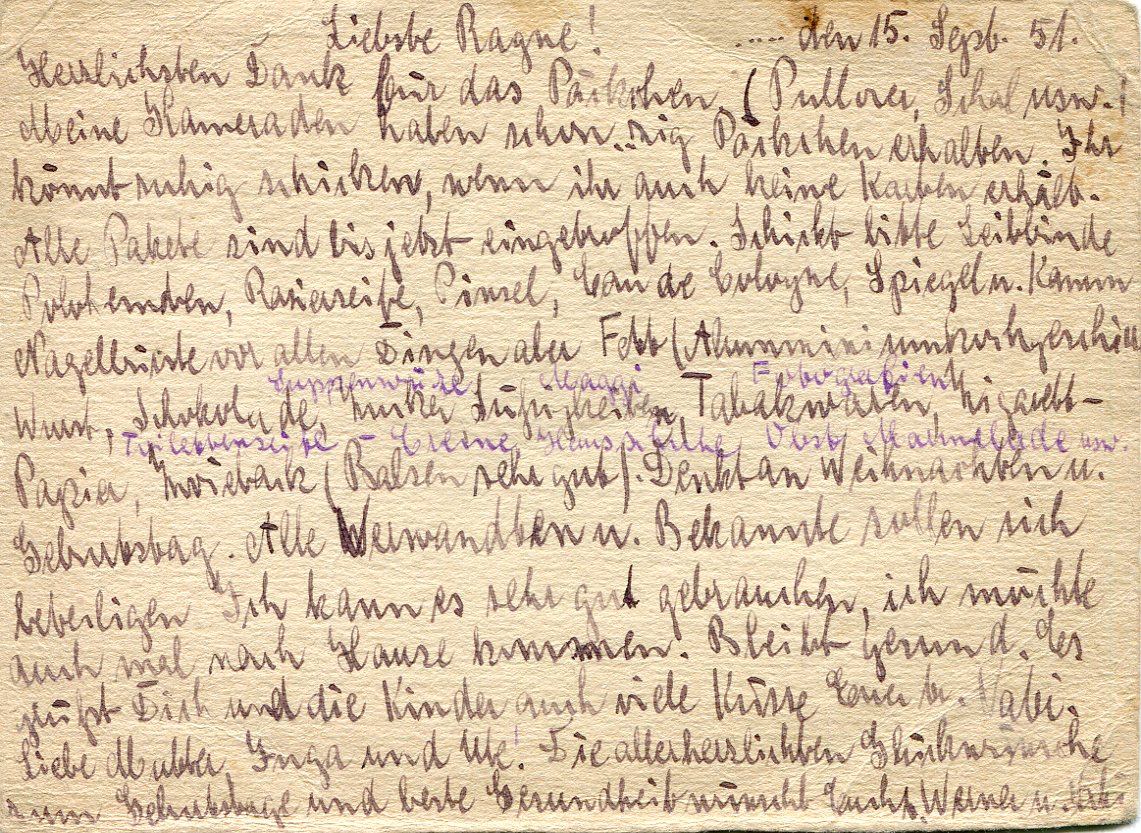 Liebste Ragne! ..... den 15. Sept. 51.
Herzlichsten Dank für das Päckchen. (Pullover, Schal usw.!
Meine Kameraden haben schon ..zig Päckchen erhalten. Ihr
könnt ruhig schicken, wenn ihr auch keine Karten erhält.
Alle Pakete sind bis jetzt eingetroffen. Schickt bitte Leibbinde
Polohemden, Rasierseife, Pinsel, Eau de Cologne, Spiegel u. Kamm
Nagelbürste vor allen Dingen aber Fett (Alumminiumkochgeschirr
Suppenwürze Maggi Fotografien
Wurst, Schokolade, Zucker Süßigkeiten, Tabakwaren, Zigarett-
Toilettenseife - Creme Hausschuhe, Obst Marmelade usw.
Papier, Zwieback (Balsen sehr gut). Denkt an Weihnachten u.
Geburtstag. Alle Verwandten u. Bekannte sollen sich
beteiligen Ich kann es sehr gut gebrauchen, ich möchte
auch mal nach Hause kommen. Bleibt gesund. Es
grüßt Dich und die Kinder auch viele Küsse Euer lb. Vati.
Liebe Mutter, Inga und Ute! Die allerherzlichsten Glückwünsche
zum Geburtstage und beste Gesundheit wünscht Euch Werner u.